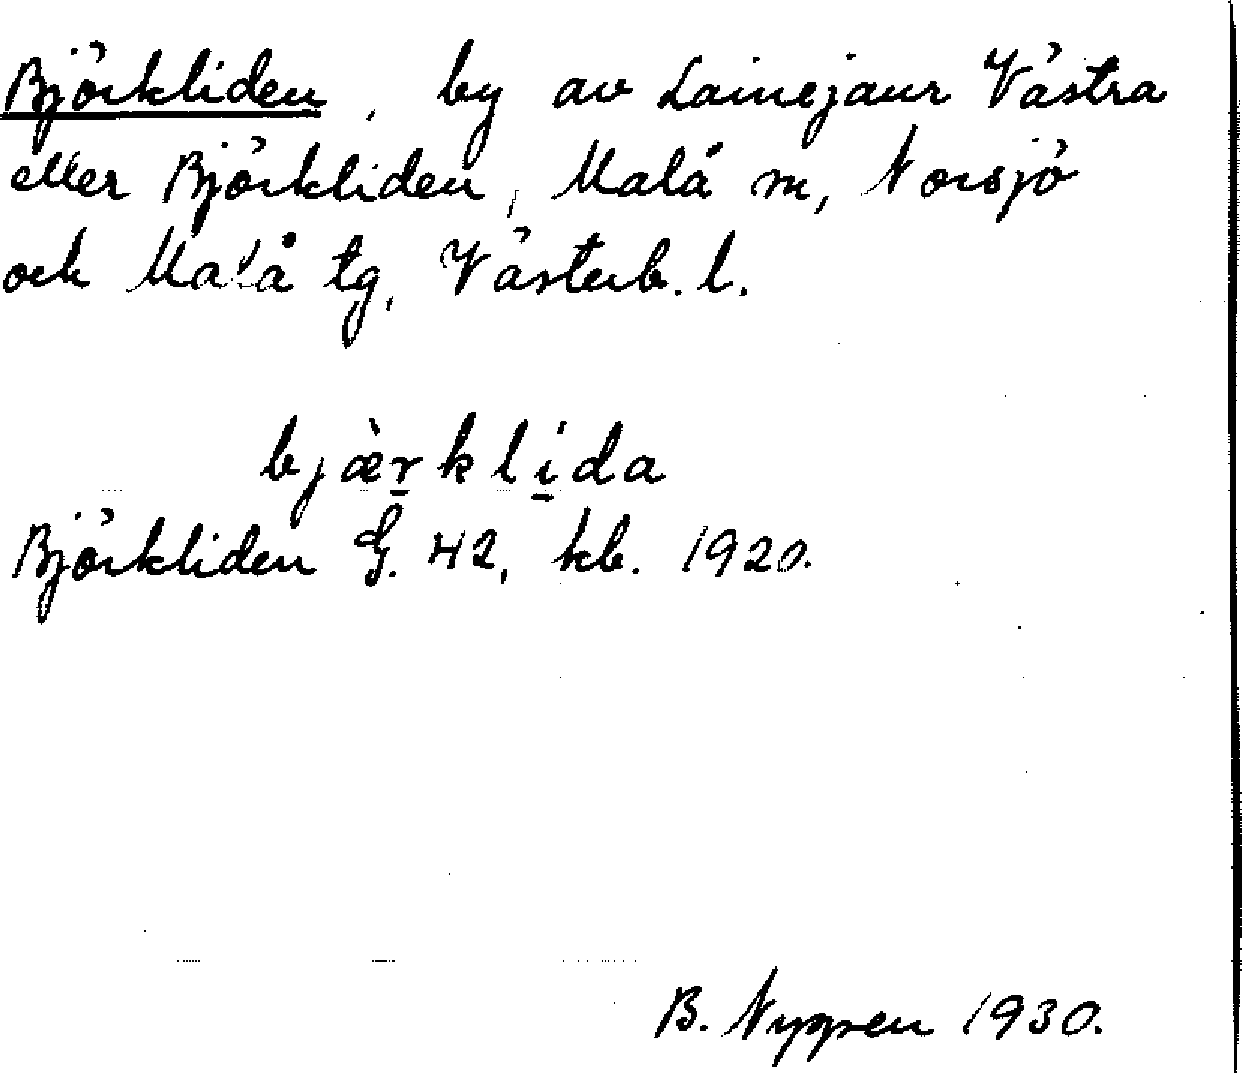 Björkliden, by av Lainejaur Västra
eller Björkliden, Malå m, Norsjö
och Malå tg, Västerb. l.
bjæ̀r̲kli̲da
Björkliden G. 42, kb. 1920.
B. Nyppen 1930.